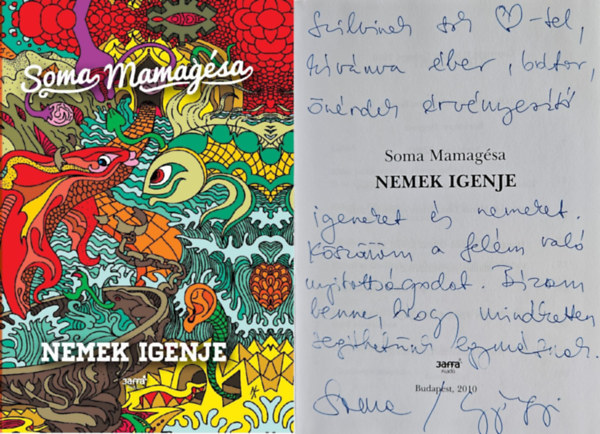 Soma Mamagésa
NEMEK IGENJE
Jaffa
Szilvinek sok ♡-tel,
kívánva éber, bátor,
önérdek érvényesítő
Soma Mamagésa
NEMEK IGENJE
igeneket és nemeket.
Köszönöm a felém való
nyitottságodat. Bízom
benne, hogy mindketten
segíthetünk egymásnak.
Jaffa
KIADÓ
Budapest, 2010
Soma / Gyöngyi